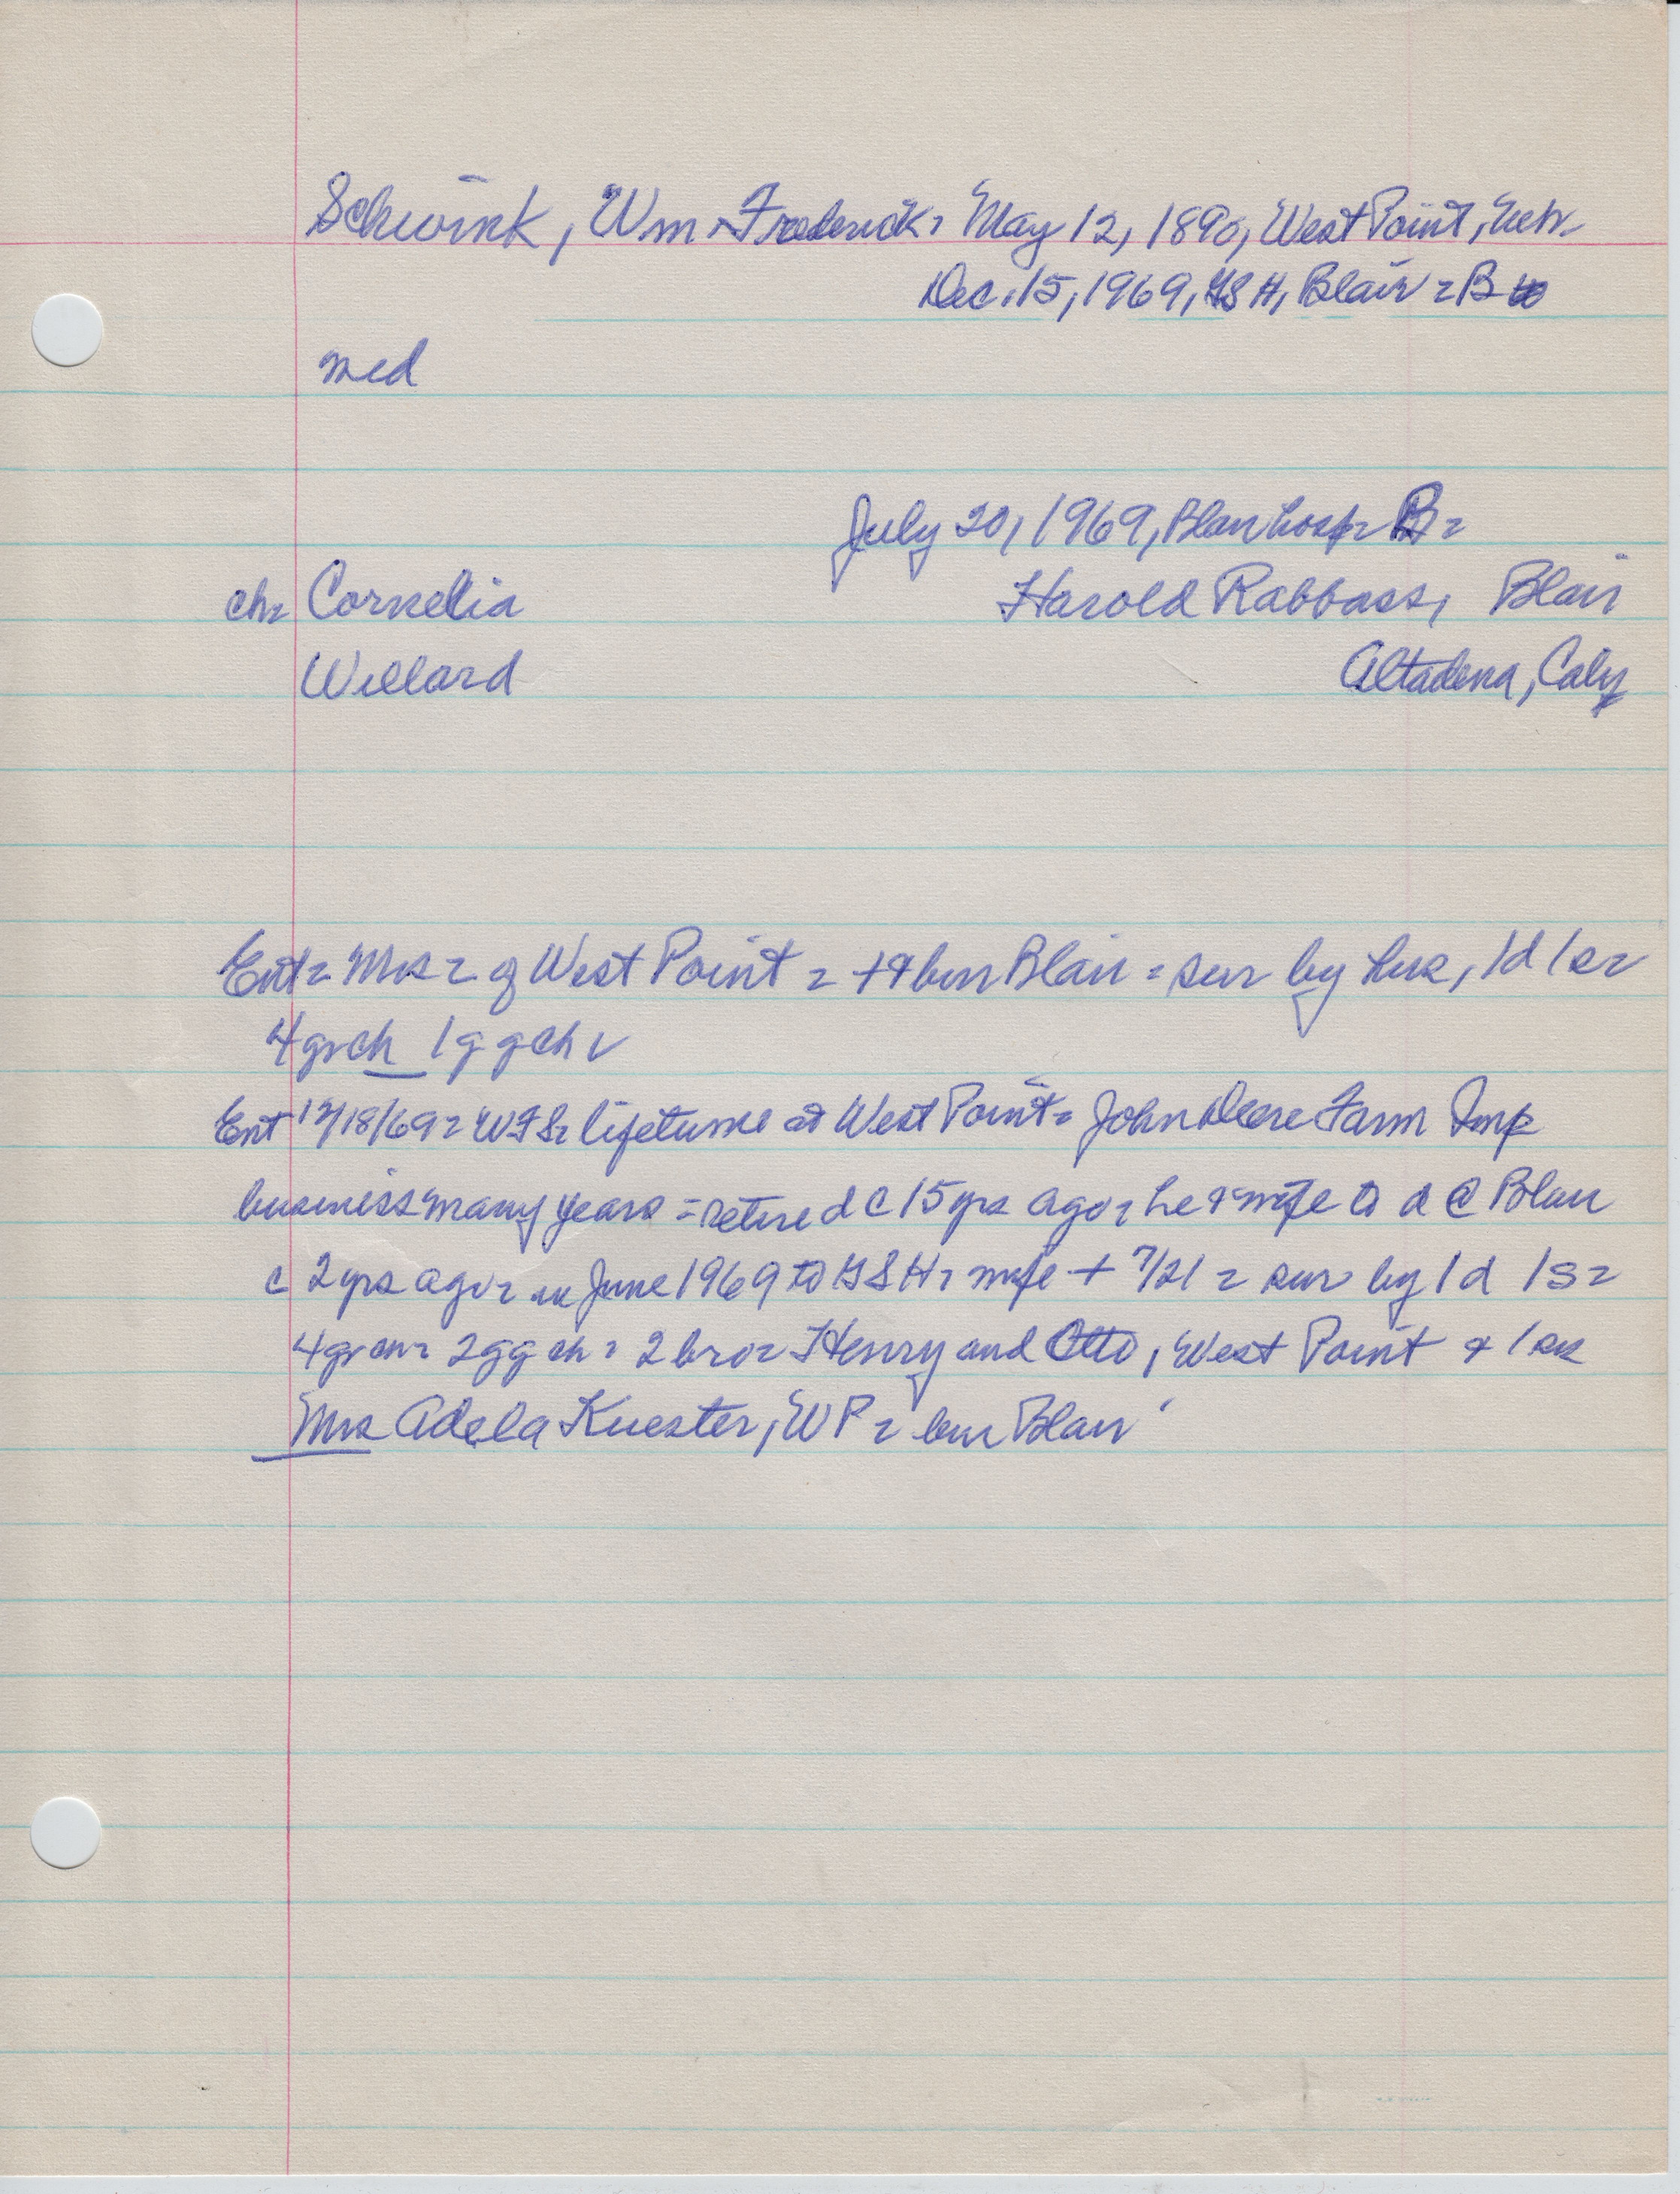 Schwink, Wm Frederick = May 12, 1890, West Point, Neb.
Dec. 15, 1969, GSH, Blair = B
med
July 20, 1969, Blair hosp = B =
ch = Cornelia Harold Rabbass, Blair
Willard Altadena, Calif
Ent = Mrs = of West Point = + & bur Blair = sur by hus, 1d 1s =
4 grch 1 g g ch
Ent 12/18/69 = WFS = lifetime at West Point = John Deere Farm Imp
business many years = retired c 15 yrs ago = he & wife to d @ Blair
c 2 yrs ago = in June 1969 to GSH = wife + 7/21 = sur by 1d 1s =
4 grch = 2 gg ch = 2 bro = Henry and Otto, West Point & 1 sis
Mrs Adela Kuester, WP = bur Blair